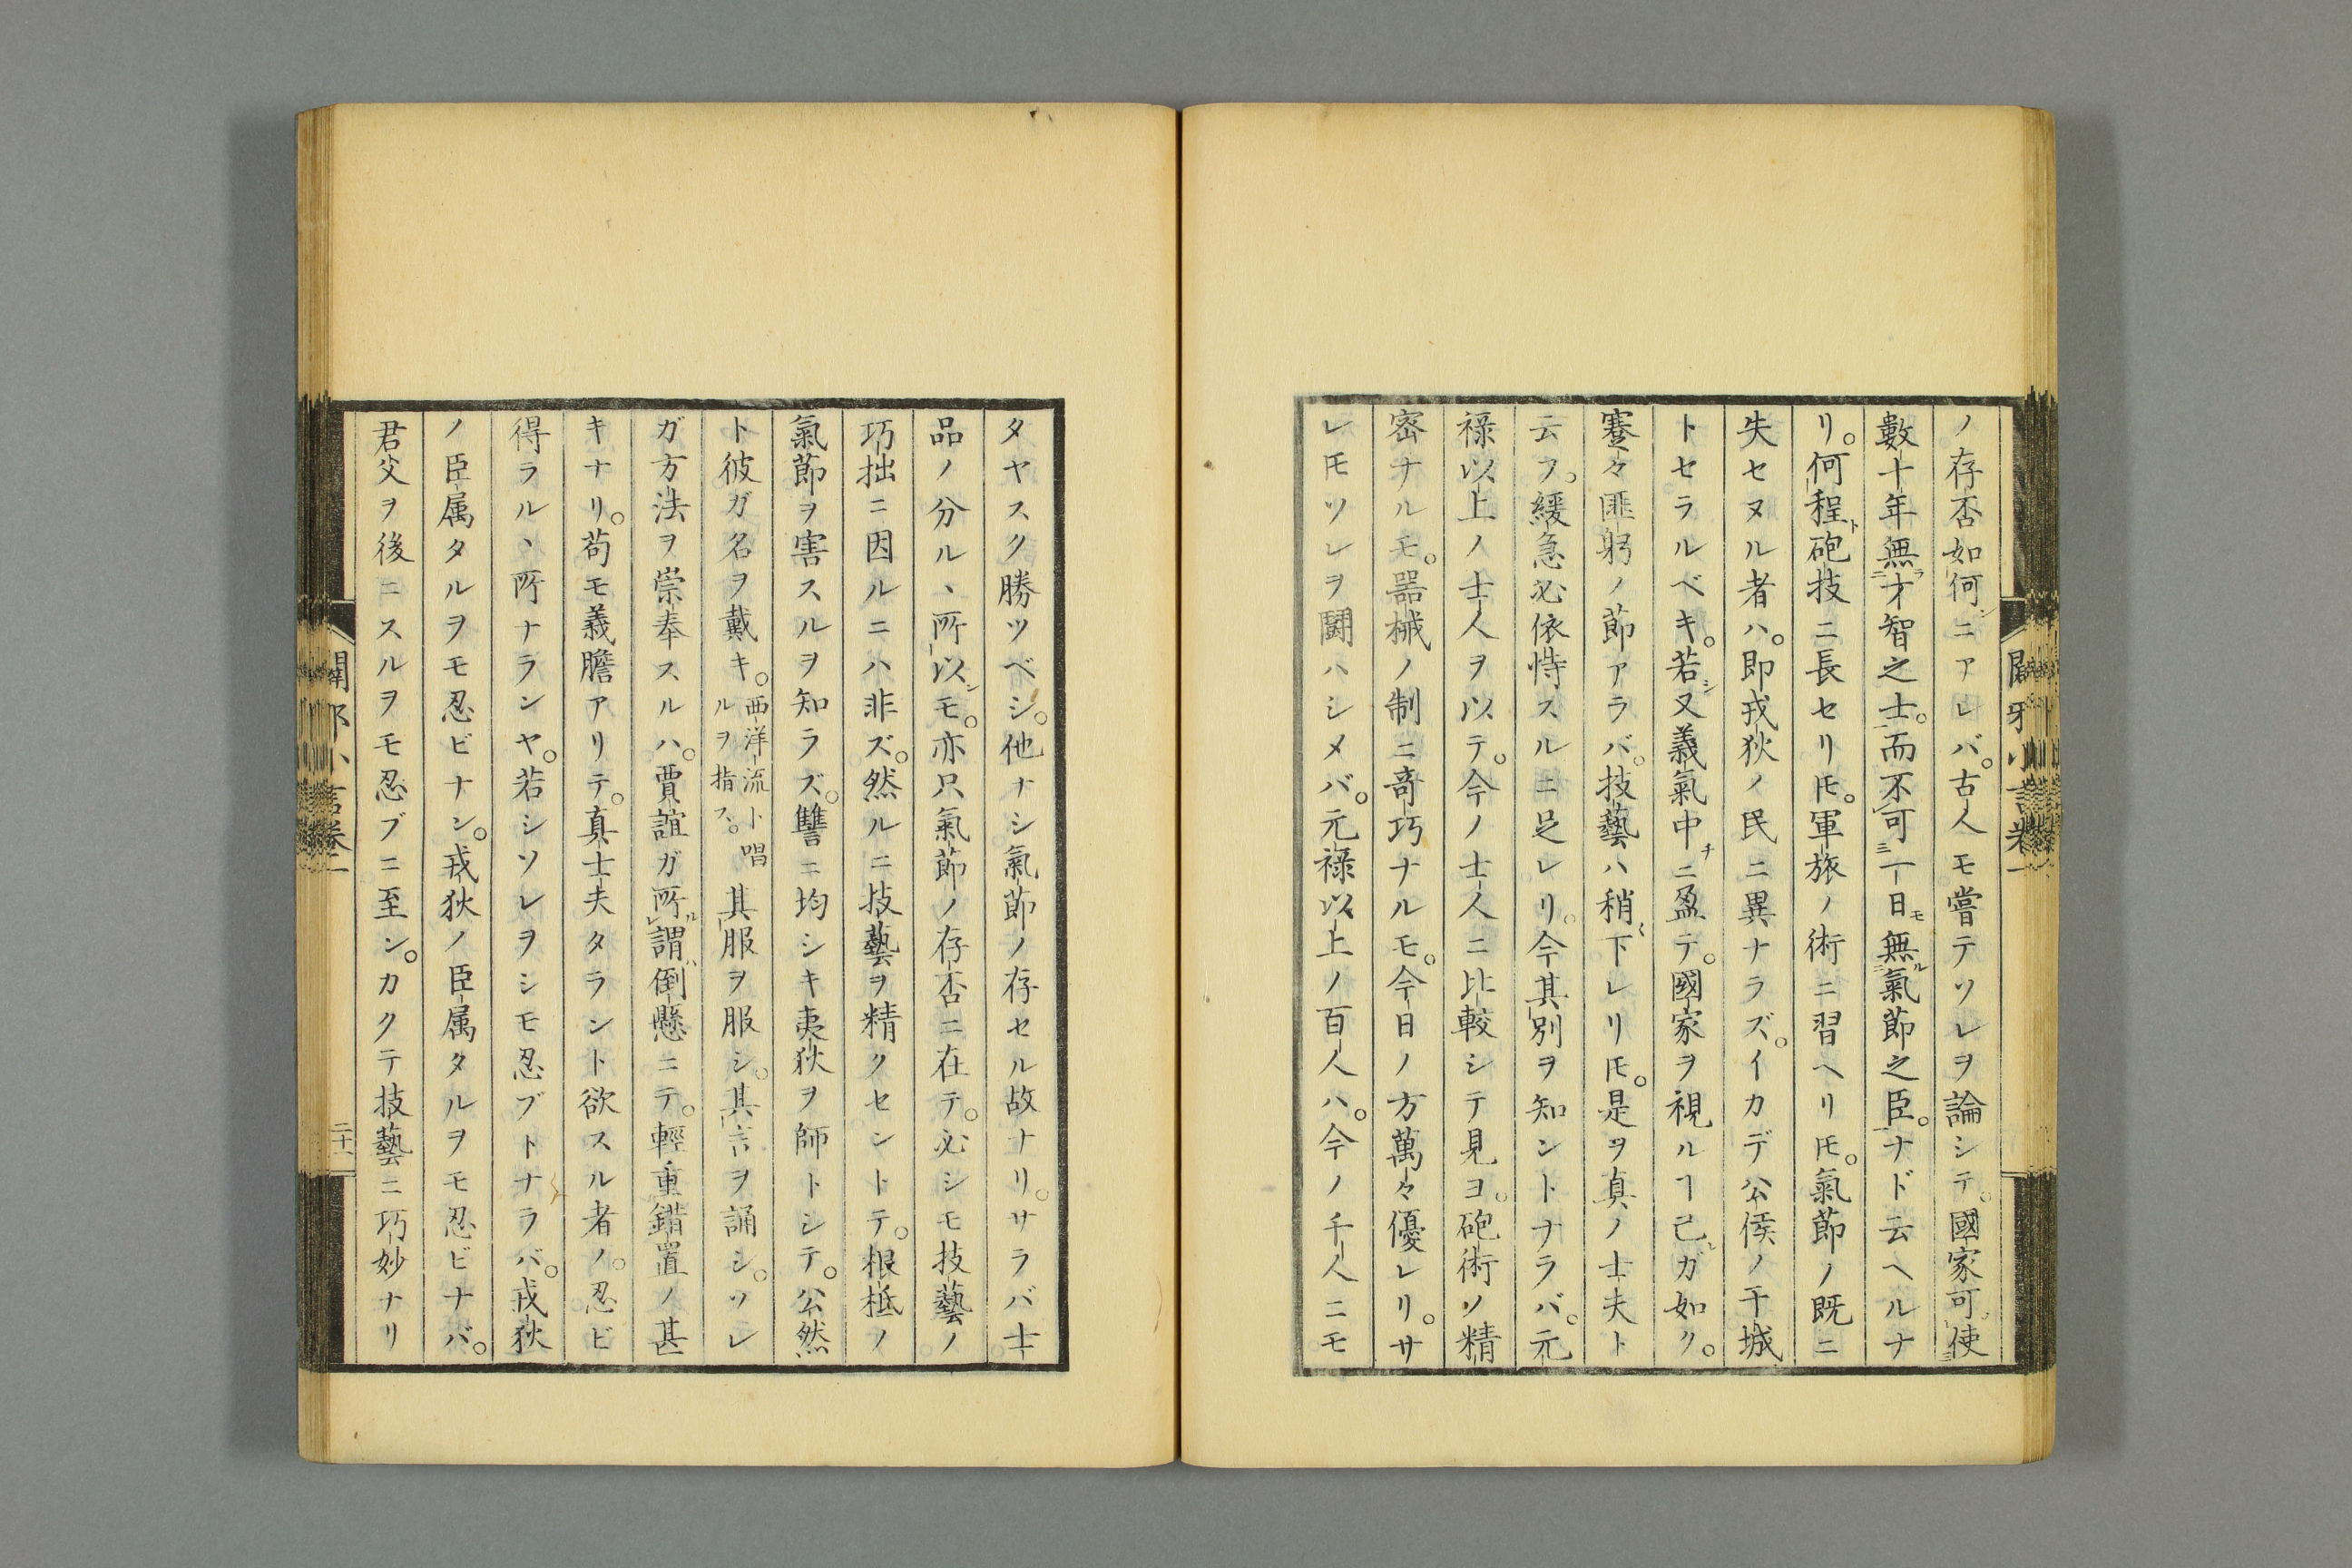 ノ存否如何ニアレバ。古人モ嘗テソレヲ論シテ。國家可使
數十年無才智之士。而不可一日無氣節之臣。ナド云ヘルナ
リ。何程砲技ニ長セリ𪜈。軍旅ノ術ニ習ヘリ𪜈。氣節ノ既ニ
失セヌル者ハ。即戎狄ノ民ニ異ナラズ。イカデ公侯ノ干城
トセラルベキ。若又義氣中ニ盈テ。國家ヲ視ルヿ己ガ如ク。
蹇々匪躬ノ節アラバ。技藝ハ稍下レリ𪜈。是ヲ真ノ士夫ト
云フ。緩急必依恃スルニ足レリ。今其別ヲ知ントナラバ。元
祿以上ノ士人ヲ以テ。今ノ士人ニ比較シテ見ヨ。砲術ソ精
密ナルモ。器械ノ制ニ奇巧ナルモ。今日ノ方萬々優レリ。サ
レ𪜈ソレヲ鬪ハシメバ。元祿以上ノ百人ハ。今ノ千人ニモ
タヤスク勝ツベシ。他ナシ氣節ノ存セル故ナリ。サラバ士
品ノ分ルヽ所以モ。亦只氣節ノ存否ニ在テ。必シモ技藝ノ
巧拙ニ因ルニハ非ズ。然ルニ技藝ヲ精クセントテ。根柢ノ
氣節ヲ害スルヲ知ラズ。讐ニ均シキ夷狄ヲ師トシテ。公然
ト彼ガ名ヲ戴キ。西洋流ト唱ルヲ指ス。其服ヲ服シ。其言ヲ誦シ。ソレ
ガ方法ヲ崇奉スルハ。賈誼ガ所謂倒懸ニテ。輕重錯置ノ甚
キナリ。苟モ義膽アリテ。真士夫タラント欲スル者ノ。忍ビ
得ラルヽ所ナランヤ。若シソレヲシモ忍ブトナラバ。戎狄
ノ臣属タルヲモ忍ビナン。戎狄ノ臣属タルヲモ忍ビナバ。
君父ヲ後ニスルヲモ忍ブニ至ン。カクテ技藝ニ巧妙ナリ
二十一